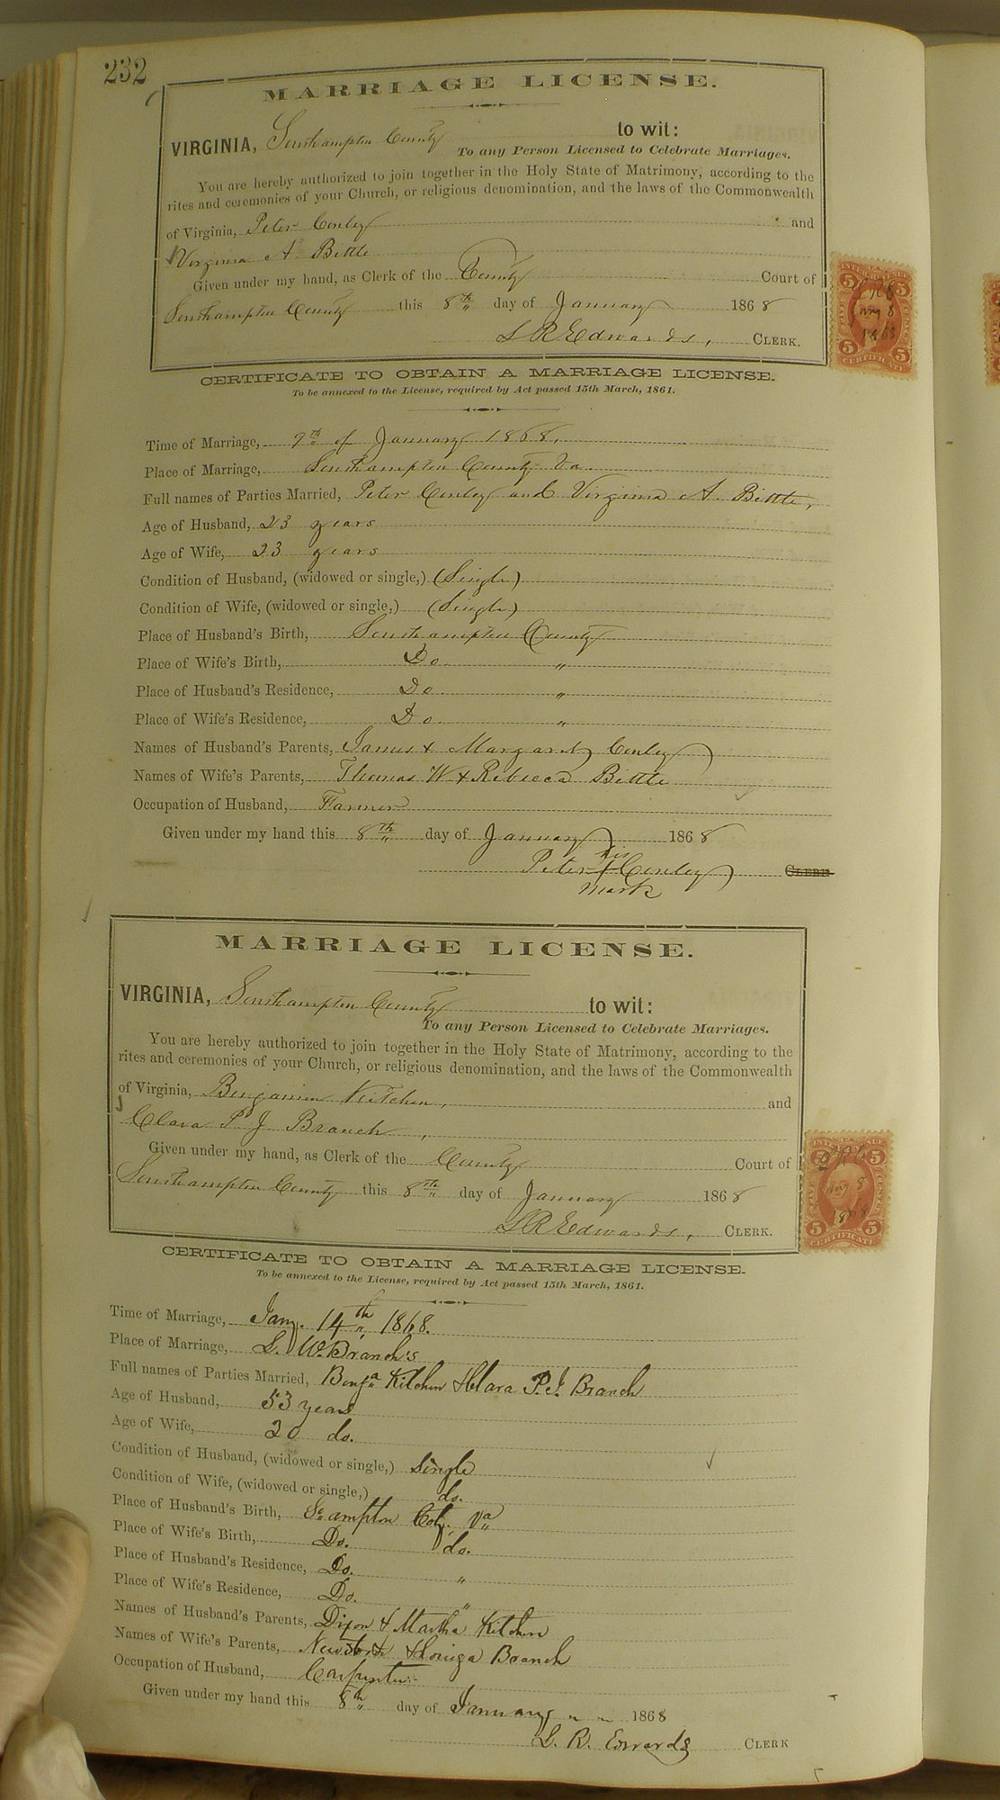 232
MARRIAGE LICENSE.
VIRGINIA, Southampton County to wit:
To any Person Licensed to Celebrate Marriages.
You are hereby authorized to join together in the Holy State of Matrimony, according to the
rites and ceremonies of your Church, or religious denomination, and the laws of the Commonwealth
of Virginia, Peter Conley and
Virginia A Bittle
Given under my hand, as Clerk of the County Court of
Southampton County this 8th day of January 1868
L R Edwards, CLERK.
CERTIFICATE TO OBTAIN A MARRIAGE LICENSE.
To be annexed to the License, required by Act passed 15th March, 1861.
Time of Marriage, 9th of January 1868.
Place of Marriage, Southampton County Va
Full names of Parties Married, Peter Conley and Virginia A. Bittle,
Age of Husband, 23 years
Age of Wife, 23 years
Condition of Husband, (widowed or single,) (Single)
Condition of Wife, (widowed or single,) (Single)
Place of Husband's Birth, Southampton County
Place of Wife's Birth, Do "
Place of Husband's Residence, Do "
Place of Wife's Residence, Do "
Names of Husband's Parents, James & Margaret Conley
Names of Wife's Parents, Thomas W & Rebecca Bittle
Occupation of Husband, Farmer
Given under my hand this 8th day of January 1868
his
Peter X Conley CLERK
mark
MARRIAGE LICENSE.
VIRGINIA, Southampton County to wit:
To any Person Licensed to Celebrate Marriages.
You are hereby authorized to join together in the Holy State of Matrimony, according to the
rites and ceremonies of your Church, or religious denomination, and the laws of the Commonwealth
of Virginia, Benjamin Kitchen, and
Clara P J Branch,
Given under my hand, as Clerk of the County Court of
Southampton County this 8th day of January 1868
L R Edwards, CLERK.
CERTIFICATE TO OBTAIN A MARRIAGE LICENSE.
To be annexed to the License, required by Act passed 15th March, 1861.
Time of Marriage, Jany. 14th 1868.
Place of Marriage, L. W. Branch's
Full names of Parties Married, Benja Kitchen & Clara P. J. Branch
Age of Husband, 53 years
Age of Wife, 20 do.
Condition of Husband, (widowed or single,) Single
Condition of Wife, (widowed or single,) do.
Place of Husband's Birth, So.ampton Coty. Va
Place of Wife's Birth, Do. do.
Place of Husband's Residence, Do. "
Place of Wife's Residence, Do. "
Names of Husband's Parents, Dixon & Martha Kitchen
Names of Wife's Parents, & Louiza Branch
Occupation of Husband, Carpenter
Given under my hand this 8th day of January 1868
L. R. Edwards CLERK